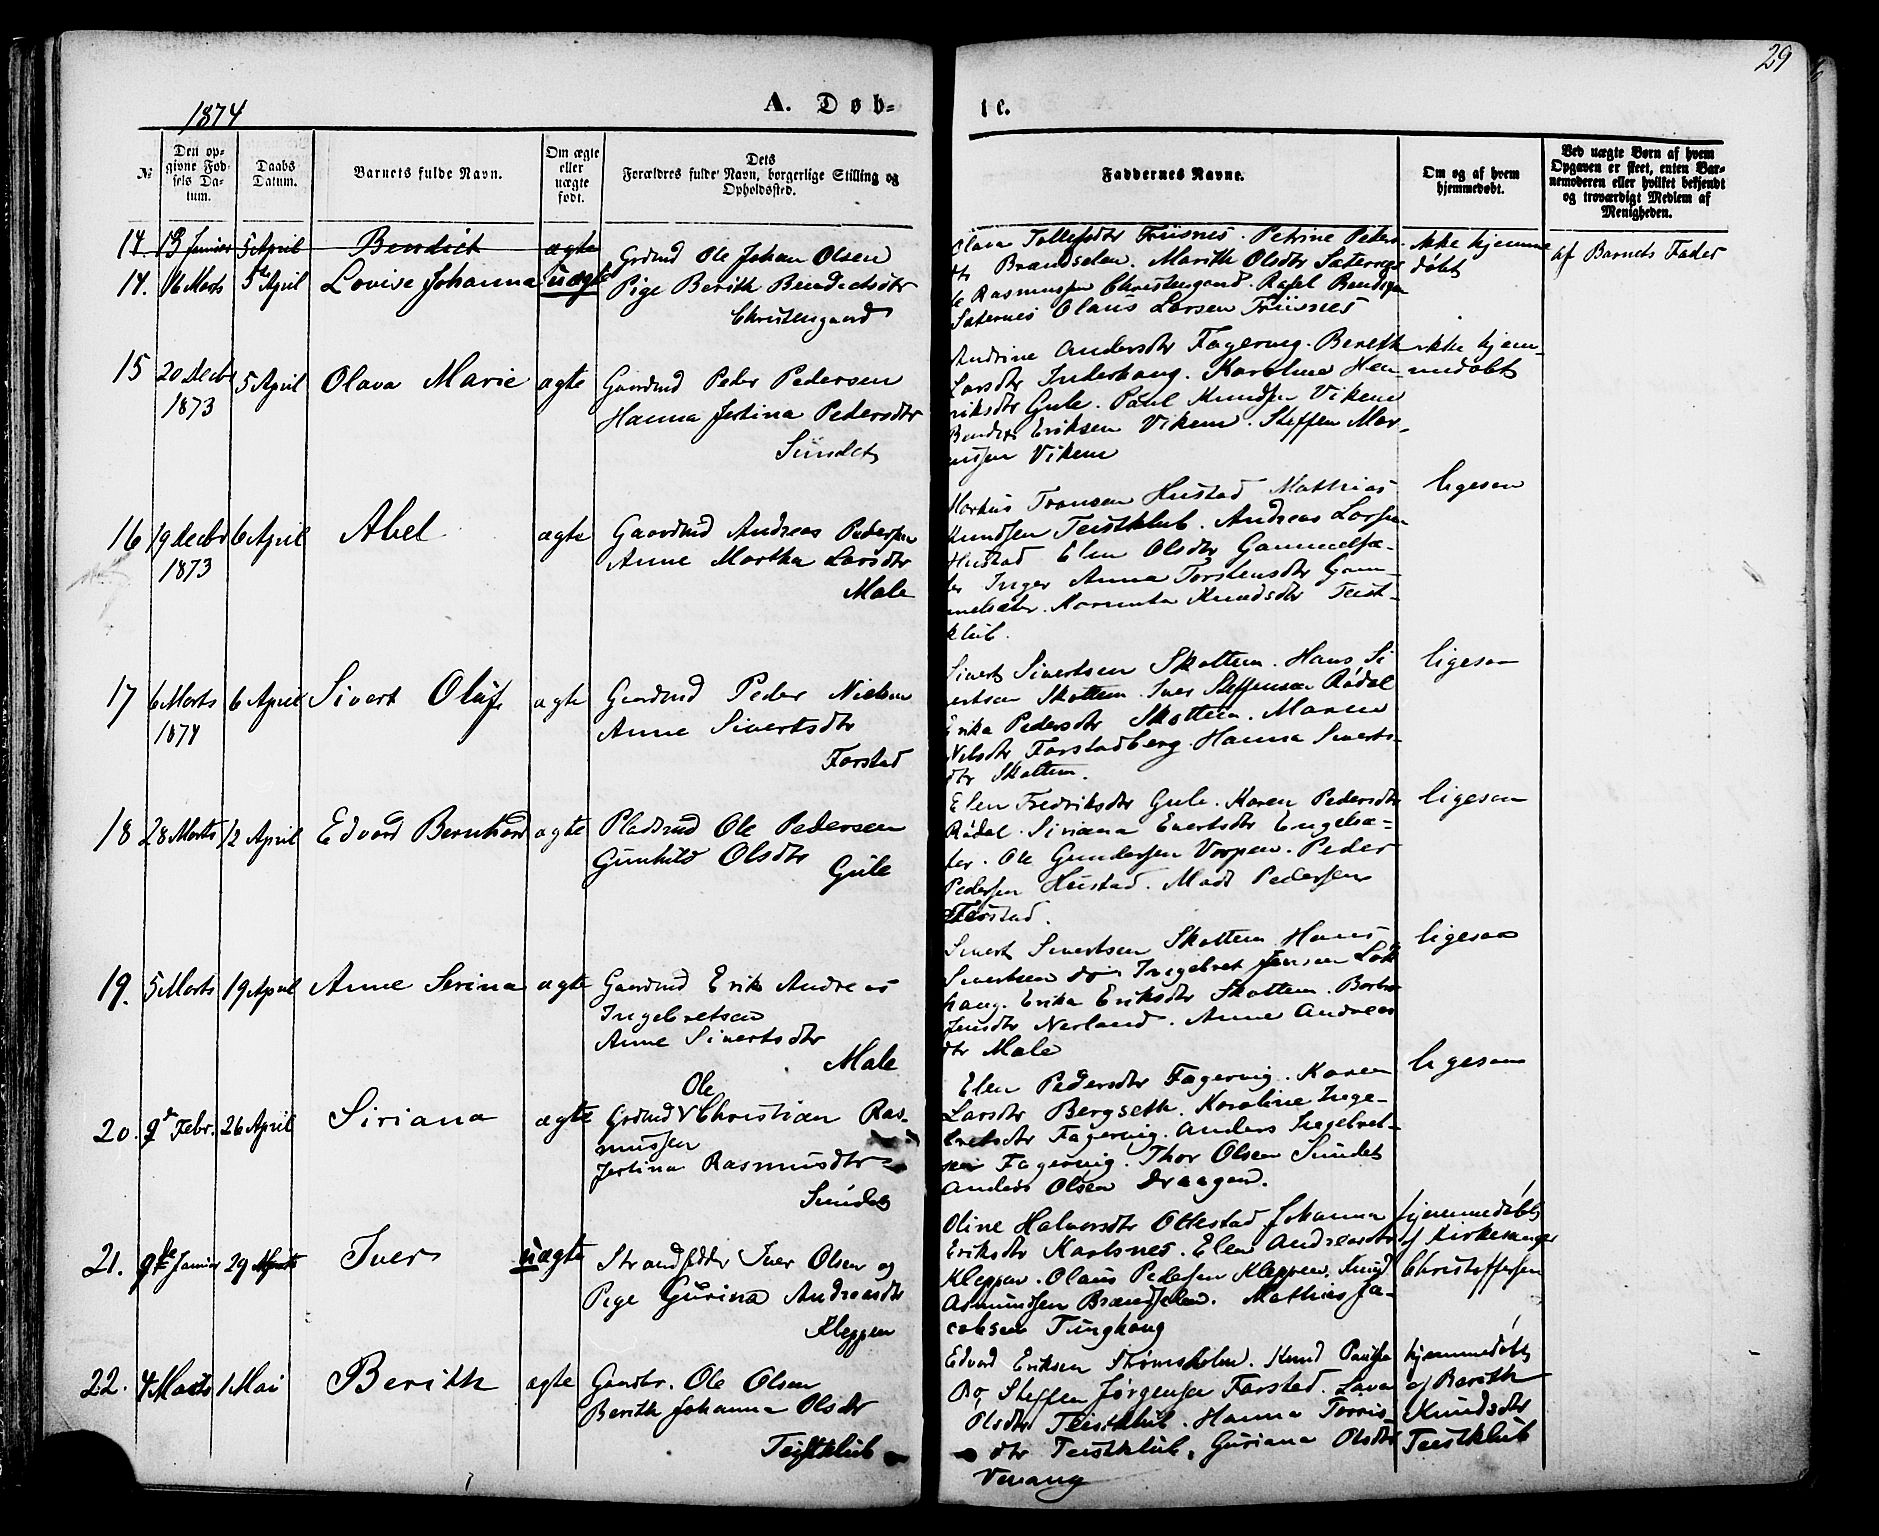 29
1874
A. Døb-
te.
№
Den op-
givne Fød-
sels Da-
tum.
Daabs
Datum.
Barnets fulde Navn.
Om ægte
eller
uægte
født.
Dets
Forældres fulde Navn, borgerlige Stilling og
Opholdssted.
Faddernes Navne.
Om og af hvem
hjemmedøbt.
Ved uægte Børn af hvem
Opgaven er skeet, enten Bar-
nemoderen eller hvilket bekjendt
og troværdigt Medlem af
Menigheden.
14 13 Januar 5 April Bendict ægte
14. 16 Marts 5 April Lovise Johanna uægte
Grdmd Ole Johan Olsen
Pige Berith Bendictsdtr
Christengaard
Olava Tollefsdtr Friisnes. Petrine Peders-
dtr Brandselen. Marith Olsdtr Saternes
Rasmussen Christengaard. Rasel Bendigsen
Saternes Olaus Larsen Friisnes
ikke hjemme
døbt
af Barnets Fader
15 20 Decbr 5 April Olava Marie ægte
1873
Gaardmd Peder Pedersen
Hanna Jertina Pedersdtr
Sundet
Andrine Andersdtr Fagervig. Bereth
Larsdtr Inderhaug. Karoline Hen-
riksdtr Gule. Paul Knudsen Viken
Bendix Eriksen Viken. Steffen Mor-
tensen Viken
ikke hjem-
medøbt
16 19 Decbr 6 April Abel ægte
1873
Gaardmd Andreas Pedersen
Anne Martha Larsdtr
Male
Markus Transen Hustad Mathias
Knudsen Teistklub. Andreas Larsen
Hustad Elen Olsdtr Gammelsæ-
ter Inger Anna Torstensdtr Gam-
melsæter. Karenta Knudsdtr Teist-
klub.
ligesaa
17 6 Marts 6 April Sivert Oluf ægte
1874
Gaardmd Peder Nielsen
Anne Sivertsdtr
Farstad
Sivert Sivertsen Skottem. Hans Si
vertsen Skottem. Iver Steffensen Rødal
Erika Pedersdtr Skottem. Maren
Nilsdtr Farstadberg. Hanna Siverts-
dtr Skottem.
ligesaa
18 28 Marts 12 April Edvard Bernhard ægte
Pladsmd Ole Pedersen
Gunhild Olsdtr
Gule
Elen Fredriksdtr Gule. Karen Pedersdtr
Rødal. Siriana Evertsdtr Engelsæ-
ter. Ole Gundersen Vorpen. Peder
Pedersen Hustad. Mads Pedersen
Farstad.
ligesaa
19. 5 Marts 19 April Anne Serina ægte
Gaardmd Erik Andreas
Ingebretsen
Anne Sivertsdtr
Male
Sivert Sivertsen Skottem Hans
Sivertsen do Ingebret Jensen Løk
haug. Erika Eriksdtr Skottem. Barbro
Jensdtr Nerland. Anne Andreas
dtr Male
ligesaa
20. 9 Febr. 26 April Siriana ægte
Ole
Grdmd Christian Ras-
mussen
Jertina Rasmusdtr
Sundet
Elen Pedersdtr Fagervig. Karen
Larsdtr Bergseth. Karoline Inge-
bretsdtr Fagervig. Anders Ingebret-
sen Fagervig. Thor Olsen Sundet
Anders Olsen Draagen.
ligesaa
21. 9de Januar 29 Marts Iver uægte
Strandsidder Iver Olsen og
Pige Gurina Andreasdtr
Kleppen
Oline Halvorsdtr Ottestad Johanna
Eriksdtr Karlsnes. Elen Andreasdtr
Kleppen. Olaus Pedersen Kleppen. Knud
Asmundsen Brandselen. Mathias Ja-
cobsen Tunghaug
hjemmedøbt
af Kirkesanger
Christoffersen
22. 4 Marts 1 Mai Berith ægte
Gaardbr. Ole Olsen
Berith Johanna Olsdtr
Teistklub
Edvard Eriksen Strømsholm. Knud Paulsen
Bø, Steffen Jørgensen Farstad. Lava
Olsdtr Teistklub. Hanna Torris-
dtr Teistklub. Guriana Olsdtr
Vevang
hjemmedøbt
af Berith
Knudsdtr
Teistklub